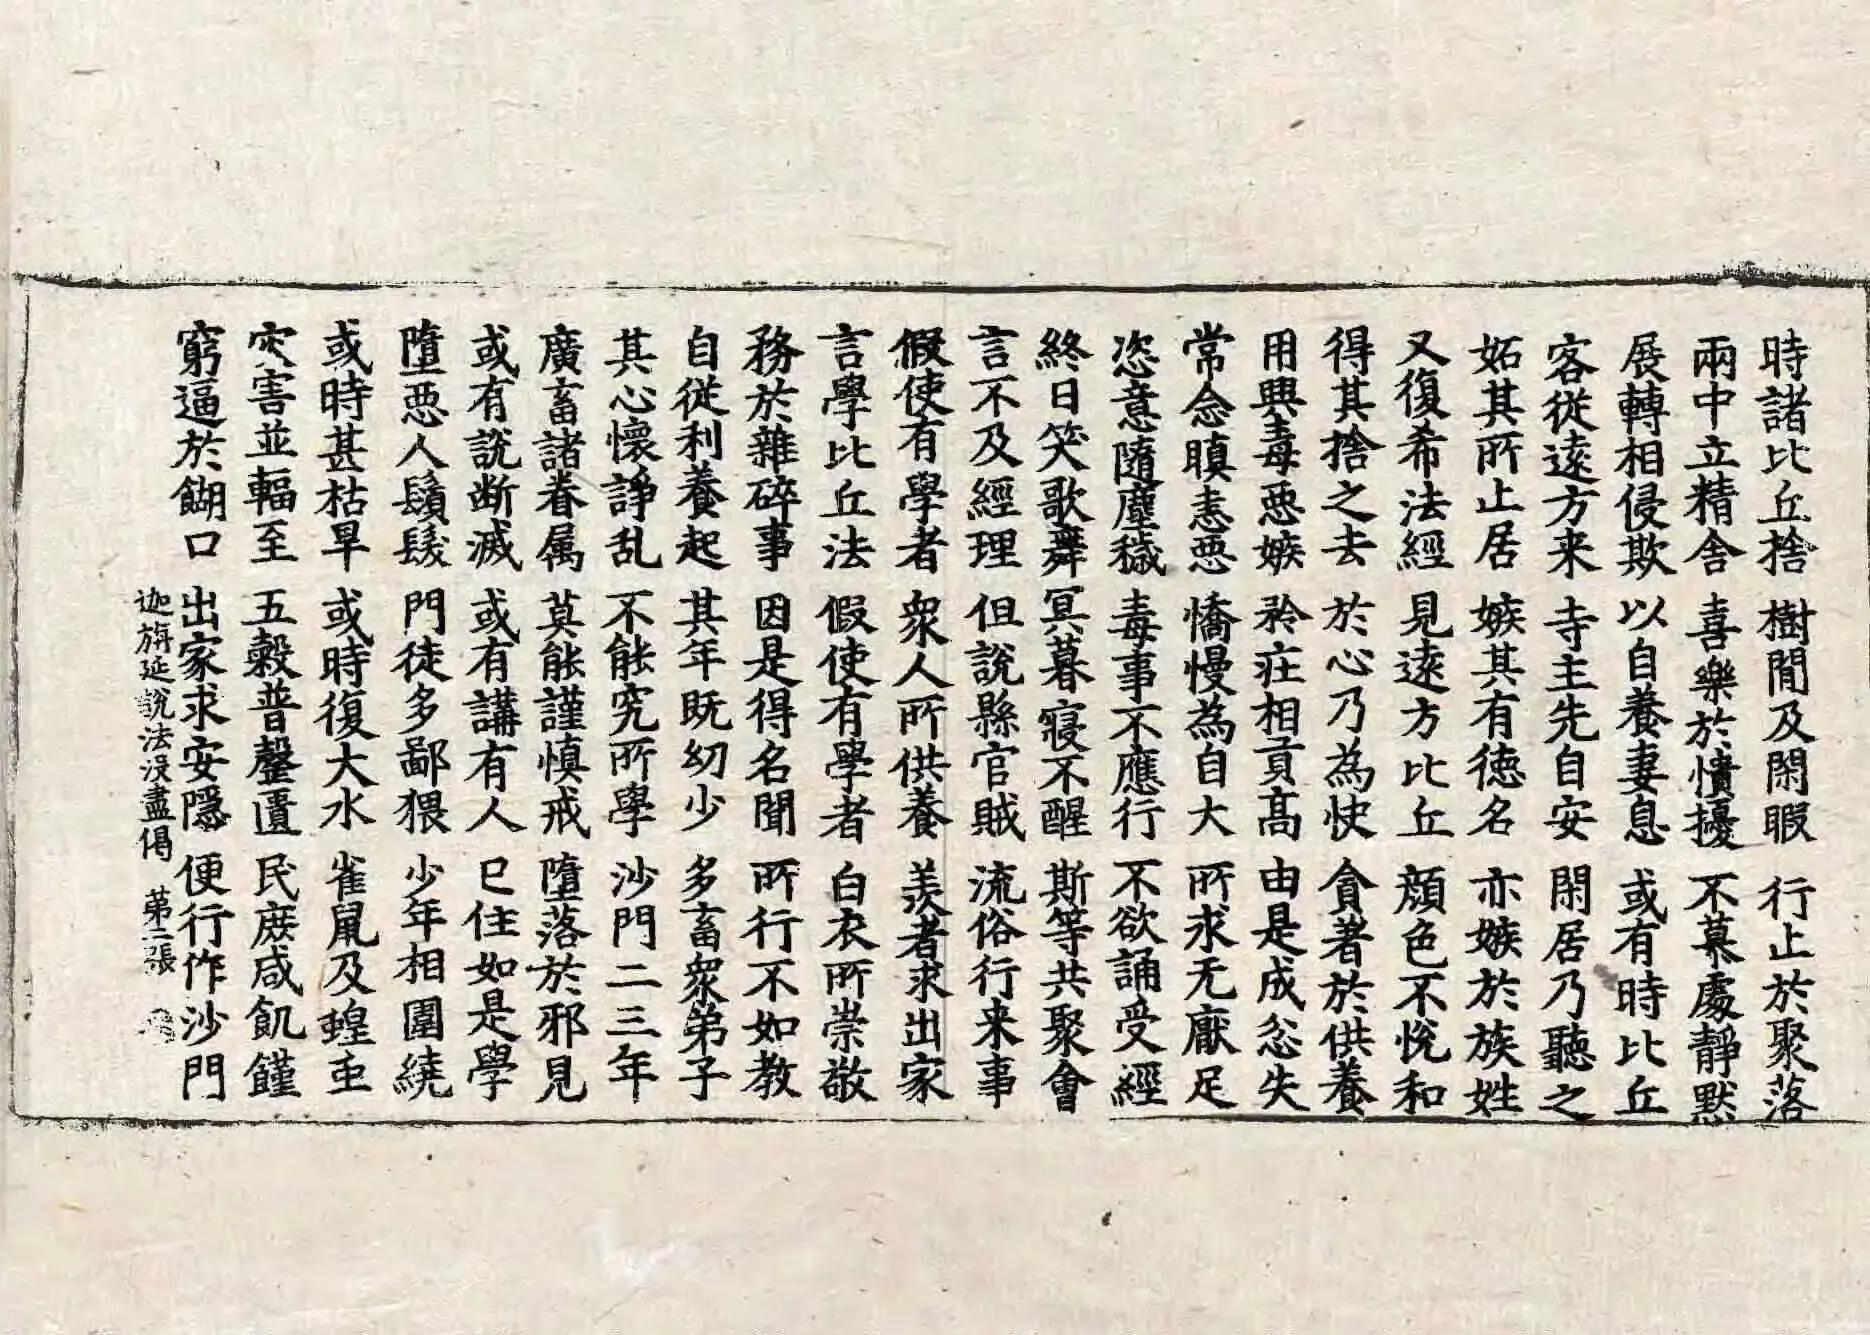 時諸比丘捨 樹閒及閑暇 行止於聚落
兩中立精舍 喜樂於憒擾 不慕處靜默
展轉相侵欺 以自養妻息 或有時比丘
客從遠方来 寺主先自安 閑居乃聽之
妬其所止居 嫉其有德名 亦嫉於族姓
又復希法經 見遠方比丘 顔色不悅和
得其捨之去 於心乃為快 貪著於供養
用興毒惡嫉 矜莊相貢高 由是成忿失
常念瞋恚惡 憍慢為自大 所求无厭足
恣意隨塵穢 毒事不應行 不欲誦受經
終日笑歌舞 冥暮寢不醒 斯等共聚會
言不及經理 但說縣官賊 流俗行来事
假使有學者 衆人所供養 羨者求出家
言學比丘法 假使有學者 白衣所崇敬
務於雜碎事 因是得名聞 所行不如教
自從利養起 其年既幼少 多畜衆弟子
其心懷諍乱 不能究所學 沙門二三年
廣畜諸眷属 莫能謹慎戒 墮落於邪見
或有說断滅 或有講有人 已住如是學
墮惡人鬚髮 門徒多鄙猥 少年相圍繞
或時甚枯旱 或時復大水 雀鼠及蝗虫
灾害並輻至 五糓普罄匱 民庻咸飢饉
窮逼於餬口 出家求安隱 便行作沙門
迦旃延說法没盡偈 苐二張